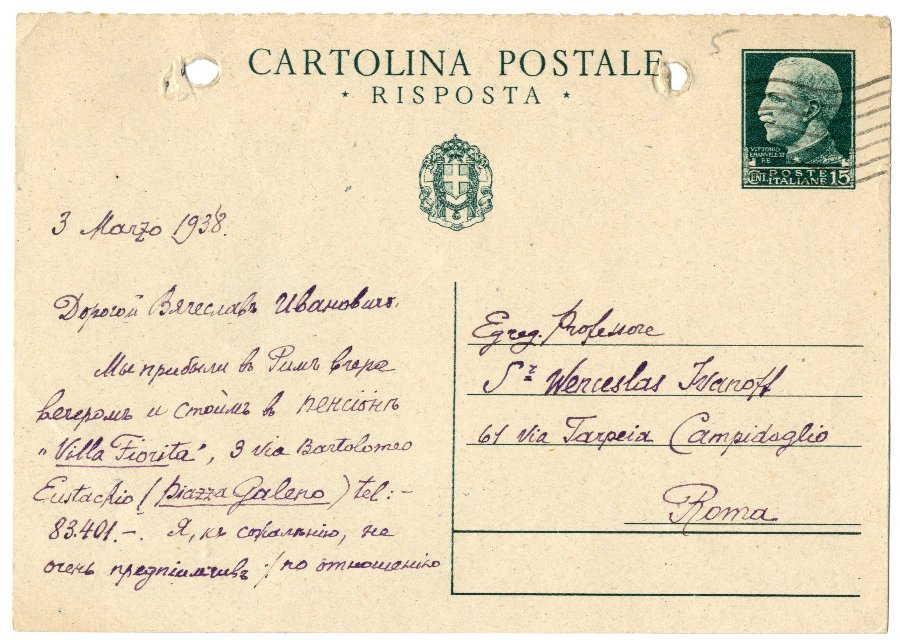 5
CARTOLINA POSTALE
* RISPOSTA *
VITTORIO
EMANUELE III
RE
POSTE
CENT. ITALIANE 15
3 Marzo 1938.
Дорогой Вячеславъ Ивановичъ.
Мы прибыли въ Римъ вчера
вечеромъ и стоимъ в пенсіонъ
"Villa Fiorita", 3 via Bartolomeo
Eustachio (piazza Galeno) tel:-
83.401.-. Я, къ сожалѣнію, не
очень предпіимчивъ :/ по отношенію
Egreg. Professore
Sr Wenceslas Ivanoff
61 via Tarpeia Campidoglio
Roma